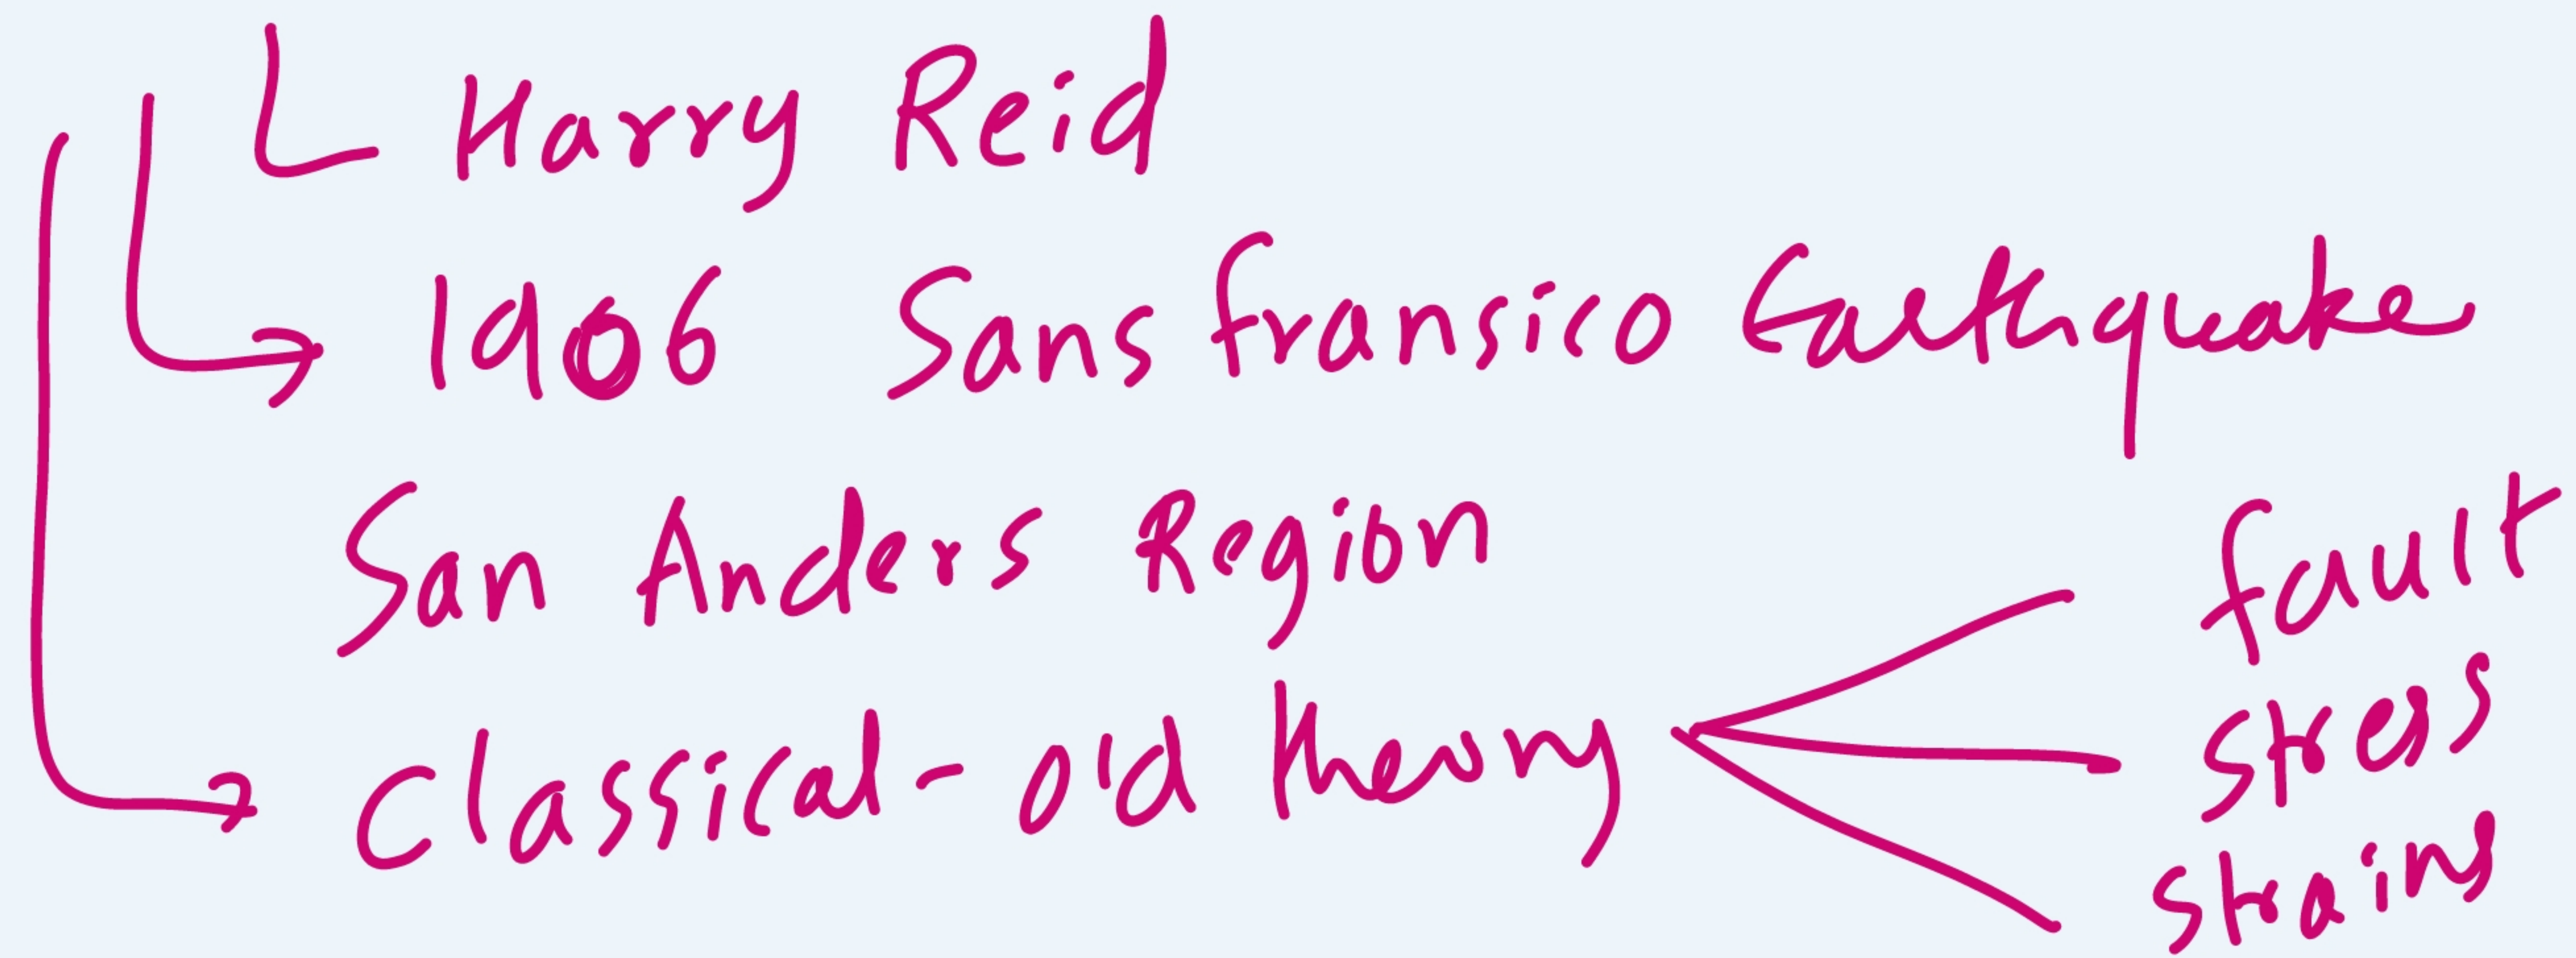 Harry Reid
1906 Sans fransico Earthquake
San Anders Region
Classical - old theory
fault
stress
strains